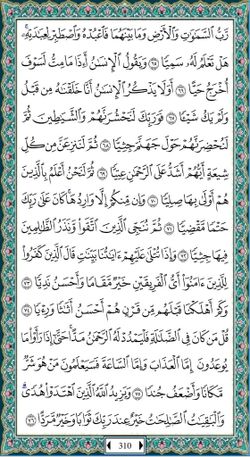 رَّبُّ ٱلسَّمَٰوَٰتِ وَٱلْأَرْضِ وَمَا بَيْنَهُمَا فَٱعْبُدْهُ وَٱصْطَبِرْ لِعِبَٰدَتِهِۦ
هَلْ تَعْلَمُ لَهُۥ سَمِيًّا ٦٥ وَيَقُولُ ٱلْإِنسَٰنُ أَءِذَا مَا مِتُّ لَسَوْفَ
أُخْرَجُ حَيًّا ٦٦ أَوَلَا يَذْكُرُ ٱلْإِنسَٰنُ أَنَّا خَلَقْنَٰهُ مِن قَبْلُ
وَلَمْ يَكُ شَيْـًٔا ٦٧ فَوَرَبِّكَ لَنَحْشُرَنَّهُمْ وَٱلشَّيَٰطِينَ ثُمَّ
لَنُحْضِرَنَّهُمْ حَوْلَ جَهَنَّمَ جِثِيًّا ٦٨ ثُمَّ لَنَنزِعَنَّ مِن كُلِّ
شِيعَةٍ أَيُّهُمْ أَشَدُّ عَلَى ٱلرَّحْمَٰنِ عِتِيًّا ٦٩ ثُمَّ لَنَحْنُ أَعْلَمُ بِٱلَّذِينَ
هُمْ أَوْلَىٰ بِهَا صِلِيًّا ٧٠ وَإِن مِّنكُمْ إِلَّا وَارِدُهَا كَانَ عَلَىٰ رَبِّكَ
حَتْمًا مَّقْضِيًّا ٧١ ثُمَّ نُنَجِّى ٱلَّذِينَ ٱتَّقَوا۟ وَّنَذَرُ ٱلظَّٰلِمِينَ
فِيهَا جِثِيًّا ٧٢ وَإِذَا تُتْلَىٰ عَلَيْهِمْ ءَايَٰتُنَا بَيِّنَٰتٍ قَالَ ٱلَّذِينَ كَفَرُوا۟
لِلَّذِينَ ءَامَنُوٓا۟ أَىُّ ٱلْفَرِيقَيْنِ خَيْرٌ مَّقَامًا وَأَحْسَنُ نَدِيًّا ٧٣
وَكَمْ أَهْلَكْنَا قَبْلَهُم مِّن قَرْنٍ هُمْ أَحْسَنُ أَثَٰثًا وَرِءْيًا ٧٤
قُلْ مَن كَانَ فِى ٱلضَّلَٰلَةِ فَلْيَمْدُدْ لَهُ ٱلرَّحْمَٰنُ مَدًّا حَتَّىٰٓ إِذَا رَأَوْا۟ مَا
يُوعَدُونَ إِمَّا ٱلْعَذَابَ وَإِمَّا ٱلسَّاعَةَ فَسَيَعْلَمُونَ مَنْ هُوَ شَرٌّ
مَّكَانًا وَأَضْعَفُ جُندًا ٧٥ وَيَزِيدُ ٱللَّهُ ٱلَّذِينَ ٱهْتَدَوْا۟ هُدًى
وَٱلْبَٰقِيَٰتُ ٱلصَّٰلِحَٰتُ خَيْرٌ عِندَ رَبِّكَ ثَوَابًا وَخَيْرٌ مَّرَدًّا ٧٦
310